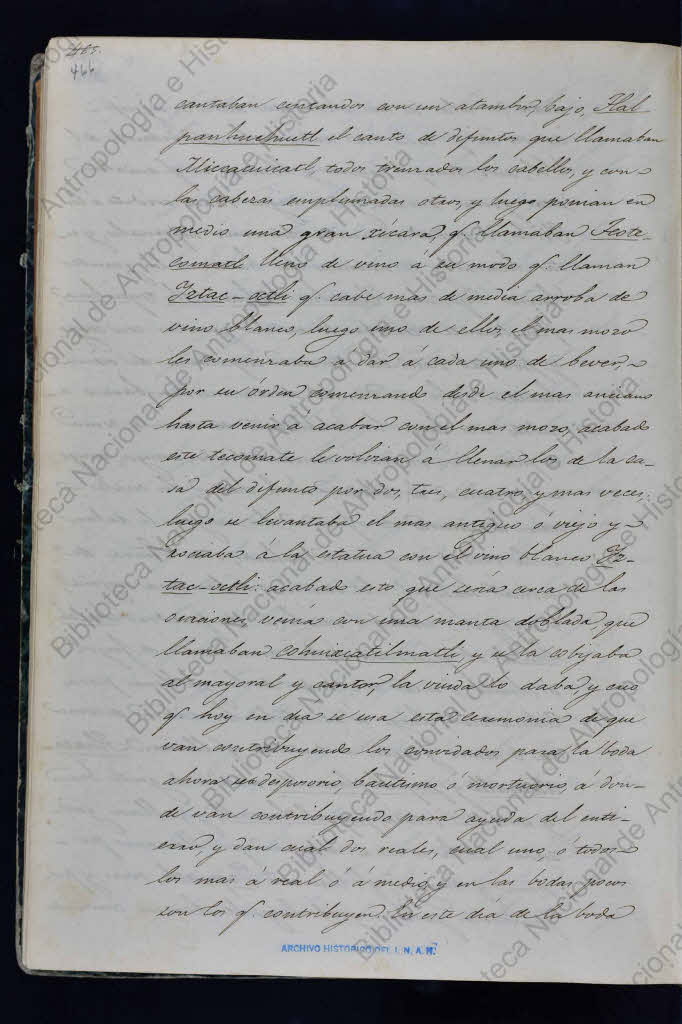 465.
466
cantaban cercandos con un atambor, bajo, Tlal
panhuehuetl el canto de difuntos que llamaban
Miccacuicatl, todos trenzados los cabellos, y con
la cabezas emplumadas otros, y luego ponian en
medio una gran xícara, q. llamaban Teote-
comatl lleno de vino á su modo q. llaman
Yztac-octli q. cabe mas de media arroba de
vino blanco, luego uno de ellos, el mas mozo
les comenzaba a dar á cada uno de bever,
por su órden comenzando desde el mas anciano
hasta venir á acabar con el mas mozo, acabado
este tecomate le volvian á llenar los de la ca-
sa del difunto por dos, tres, cuatro, y mas veces:
luego se levantaba el mas antiguo ó viejo y
rociaba á la estatua con el vino blanco Yz-
tac-octli: acabado esto que sería cerca de las
oraciones, venía con una manta doblada, que
llamaban cohuixcatilmatli, y se la cobijaba
al mayoral y cantor, la viuda lo daba, y creo
q. hoy en dia se usa esta ceremonia de que
van contribuyendo los convidados para la boda
ahora sea desposorio, bautismo ó mortuorio, á don-
de van contribuyendo para ayuda del enti-
erro, y dan cual dos reales, cual uno, ó todos
los mas á real ó á medio, y en las bodas pocos
son los q. contribuyen. En este dia de la boda
ARCHIVO HISTORICO DEL I. N. A. H.
Biblioteca Nacional de Antropología e Historia